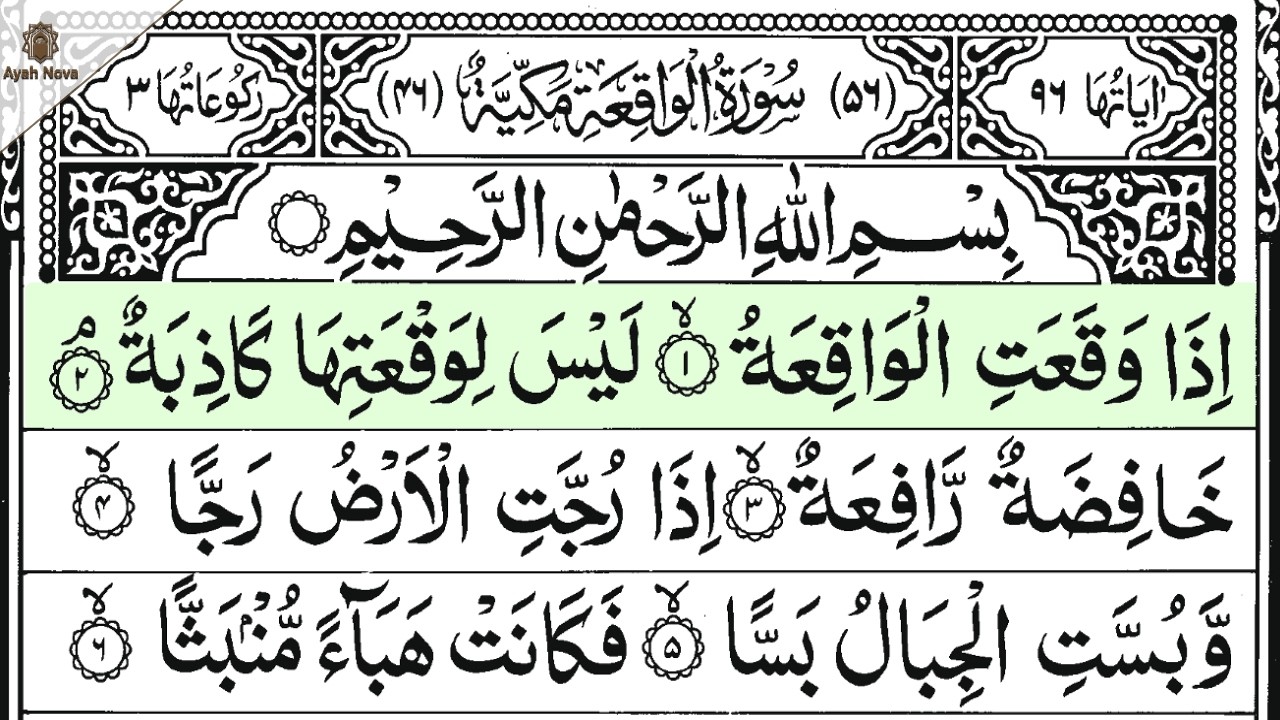 Ayah Nova
اٰيَاتُهَا ٩٦ (٥٦) سُوْرَةُ الْوَاقِعَةِ مَكِّيَّةٌ (٤٦) رُكُوْعَاتُهَا ٣
بِسْمِ اللّٰهِ الرَّحْمٰنِ الرَّحِيْمِ
اِذَا وَقَعَتِ الْوَاقِعَةُ ۙ‏﴿۱﴾ لَيْسَ لِوَقْعَتِهَا كَاذِبَةٌ ۘ‏﴿۲﴾
خَافِضَةٌ رَّافِعَةٌ ۙ‏﴿۳﴾ اِذَا رُجَّتِ الْاَرْضُ رَجًّا ۙ‏﴿۴﴾
وَّبُسَّتِ الْجِبَالُ بَسًّا ۙ‏﴿۵﴾ فَكَانَتْ هَبَآءً مُّنْۢبَثًّا ۙ‏﴿۶﴾